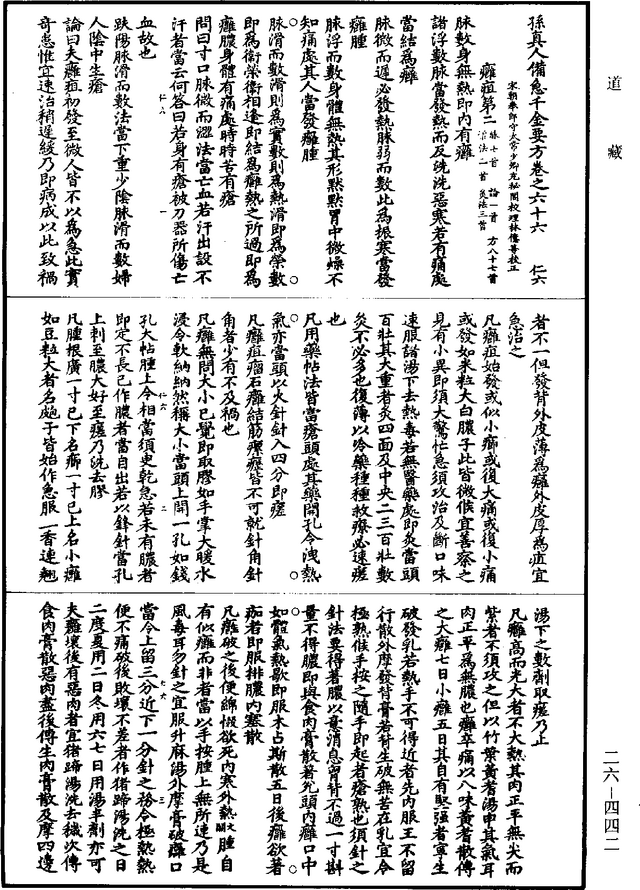 道藏
孫真人備急千金要方卷之六十六　仁六
宋朝奉郎守太常少卿充秘閣校理林億等校正
癰疽第二　脉七首　論一首　方八十七首
法二首　灸法三首
脉數身無熱即內有癰
諸浮數脉當發熱而反洗洗惡寒若有痛處
當結爲癰
脉微而遲必發熱脉弱而數此爲振寒當發
癰腫
脉浮而數身體無熱其形默默胃中微燥不
知痛處其人當發癰腫
脉滑而數滑則爲實數則爲熱滑即爲榮數
即爲衛榮衛相逢即結爲癰熱之所過即爲
癰膿身體有痛處時時苦有瘡
問曰寸口脉微而澀法當亡血若汗出設不
汗者當云何答曰若身有瘡被刀器所傷亡
血故也
趺陽脉滑而數法當下重少陰脉滑而數婦
人陰中生瘡
論曰夫癰疽初發至微人皆不以爲急此實
奇患惟宜速治稍遲緩乃即病成以此致禍
者不一但發背外皮薄爲癰外皮厚爲疽宜
急治之
凡癰疽始發或似小癤或復大痛或復小痛
或發如米粒大白膿子此皆微候宜善察之
見有小異即須大驚忙急須攻治及斷口味
速服諸湯下去熱毒若無醫藥處即灸當頭
百壯其大重者灸四面及中央二三百壯數
灸不必多也復薄以冷藥種種救療必速瘥
也
凡用藥帖法皆當瘡頭處其藥開孔令洩熱
氣亦當頭以火針針入四分即瘥
凡癰疽瘤石癰結筋瘰癧皆不可就針角針
角者少有不及禍也
凡癰無問大小已覺即取膠如手掌大暖水
浸令軟納納然稱大小當頭上開一孔如錢
孔大帖腫上令相當須臾乾急若未有膿者
即定不長已作膿者當自出若以鋒針當孔
上刺至膿大好至瘥乃洗去膠
凡腫根廣一寸已下名癤一寸已上名小癰
如豆粒大者名皰子皆始作急服一香連翹
湯下之數劑取瘥乃止
凡癰高而光大者不大熱其肉正平無尖而
紫者不須攻之但以竹葉黃耆湯申其氣耳
肉正平爲無膿也癰卒痛以八味黃耆散傅
之大癰七日小癰五日其自有堅强者寧生
破發乳若熱手不可得近者先內服王不留
行散外摩發背膏若背生破無苦在乳宜令
極熟候手按之隨手即起者瘡熟也須針之
針法要得著膿以意消息留背不過一寸斟
量不得膿即與食肉膏散著兊頭內癰口中
如體氣熱歇即服木占斯散五日後癰欲著
痂者即服排膿內塞散
凡癰破之後便綿惙欲死內寒外熱　腫自
有似癰而非者當以手按腫上無所連乃是
風毒耳勿針之宜服升麻湯外摩膏破癰口
當令上留三分近下一分針之務令極熱熱
便不痛破後敗壞不差者作猪蹄湯洗之日
二度夏用二日冬用六七日用湯半劑亦可
夫癰壞後有惡肉者宜猪蹄湯洗去穢次傅
食肉膏散惡肉盡後傅生肉膏散及摩四邊
二六—四四二